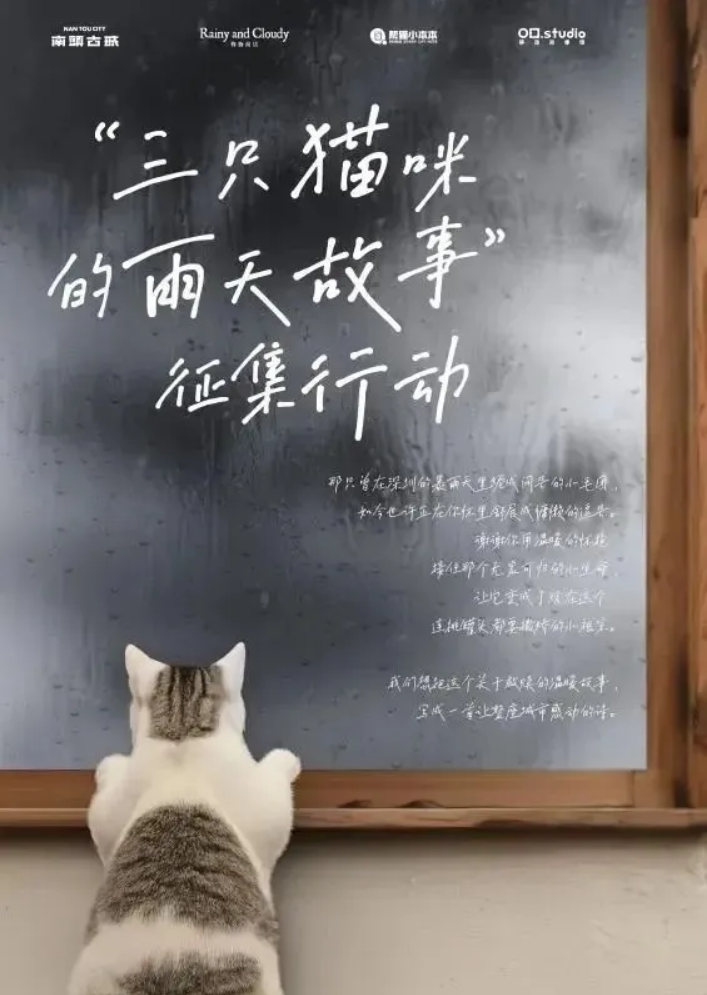 NAN TOU CITY
南頭古城
Rainy and Cloudy
帮猫小本本
口口.studio
“三只猫咪
的雨天故事”
征集行动
那只曾在深圳的暴雨天里缩成问号的小毛团，
如今也许正在你怀里舒展成慵懒的逗号。
谢谢你用温暖的怀抱
接住那个无家可归的小生命，
让它变成了现在这个
连挑罐头都要撒娇的小祖宗。
我们想把这个关于救赎的温暖故事，
写成一首让整座城市感动的诗。